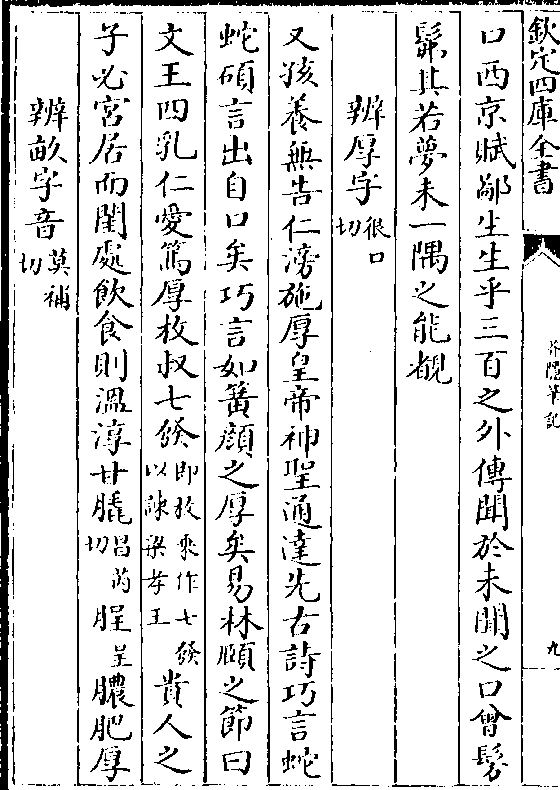 欽定四庫全書
芥隱筆記
九
口西京賦鄙生生乎三百之外傳聞於未聞之口曾髣
髴其若夢未一隅之能覩
辨厚字很口切
又孩養無告仁滂施厚皇帝神聖通達先古詩巧言蛇
蛇碩言出自口矣巧言如簧顔之厚矣易林頤之節曰
文王四乳仁愛篤厚枚叔七發即枚乘作七發以諫梁孝王貴人之
子必宮居而閨處飲食則溫淳甘膬昌芮切脭呈膿肥厚
辨畝字音莫補切